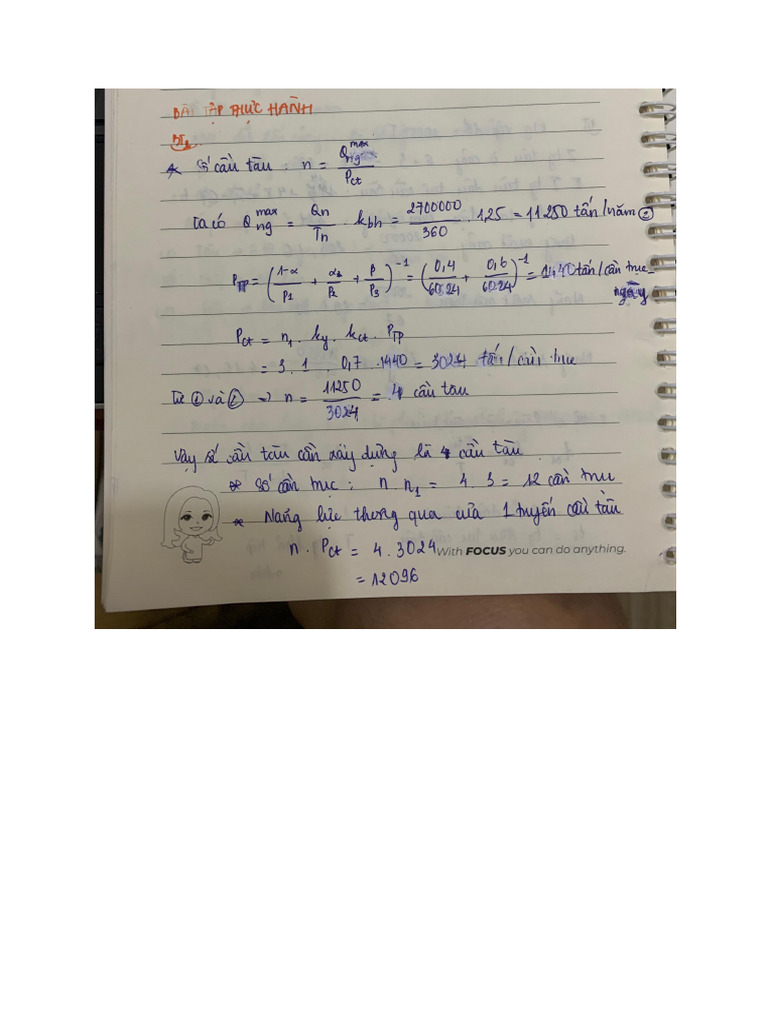 BÀI TẬP THỰC HÀNH
BT1
* Số cầu tàu : n = Qng^max / Pct
Ta có Qng^max = Qn / Tn . kbh = 2700000 / 360 . 1,25 = 11250 tấn/năm ②
PTP = ( 1-α / P1 + α / P2 + β / P3 )^-1 = ( 0,4 / 60.24 + 0,6 / 60.24 )^-1 = 1440 tấn/cần trục_
ngày
Pct = n1 . ky . kct . PTP
= 3 . 1 . 0,7 . 1440 = 3024 tấn/cần trục
Từ ① và ② => n = 11250 / 3024 = 4 cầu tàu
Vậy số cầu tàu cần xây dựng là 4 cầu tàu
* Số cần trục : n . n1 = 4 . 3 = 12 cần trục
* Năng lực thông qua của 1 tuyến cầu tàu
n . Pct = 4 . 3024
With FOCUS you can do anything.
= 12096